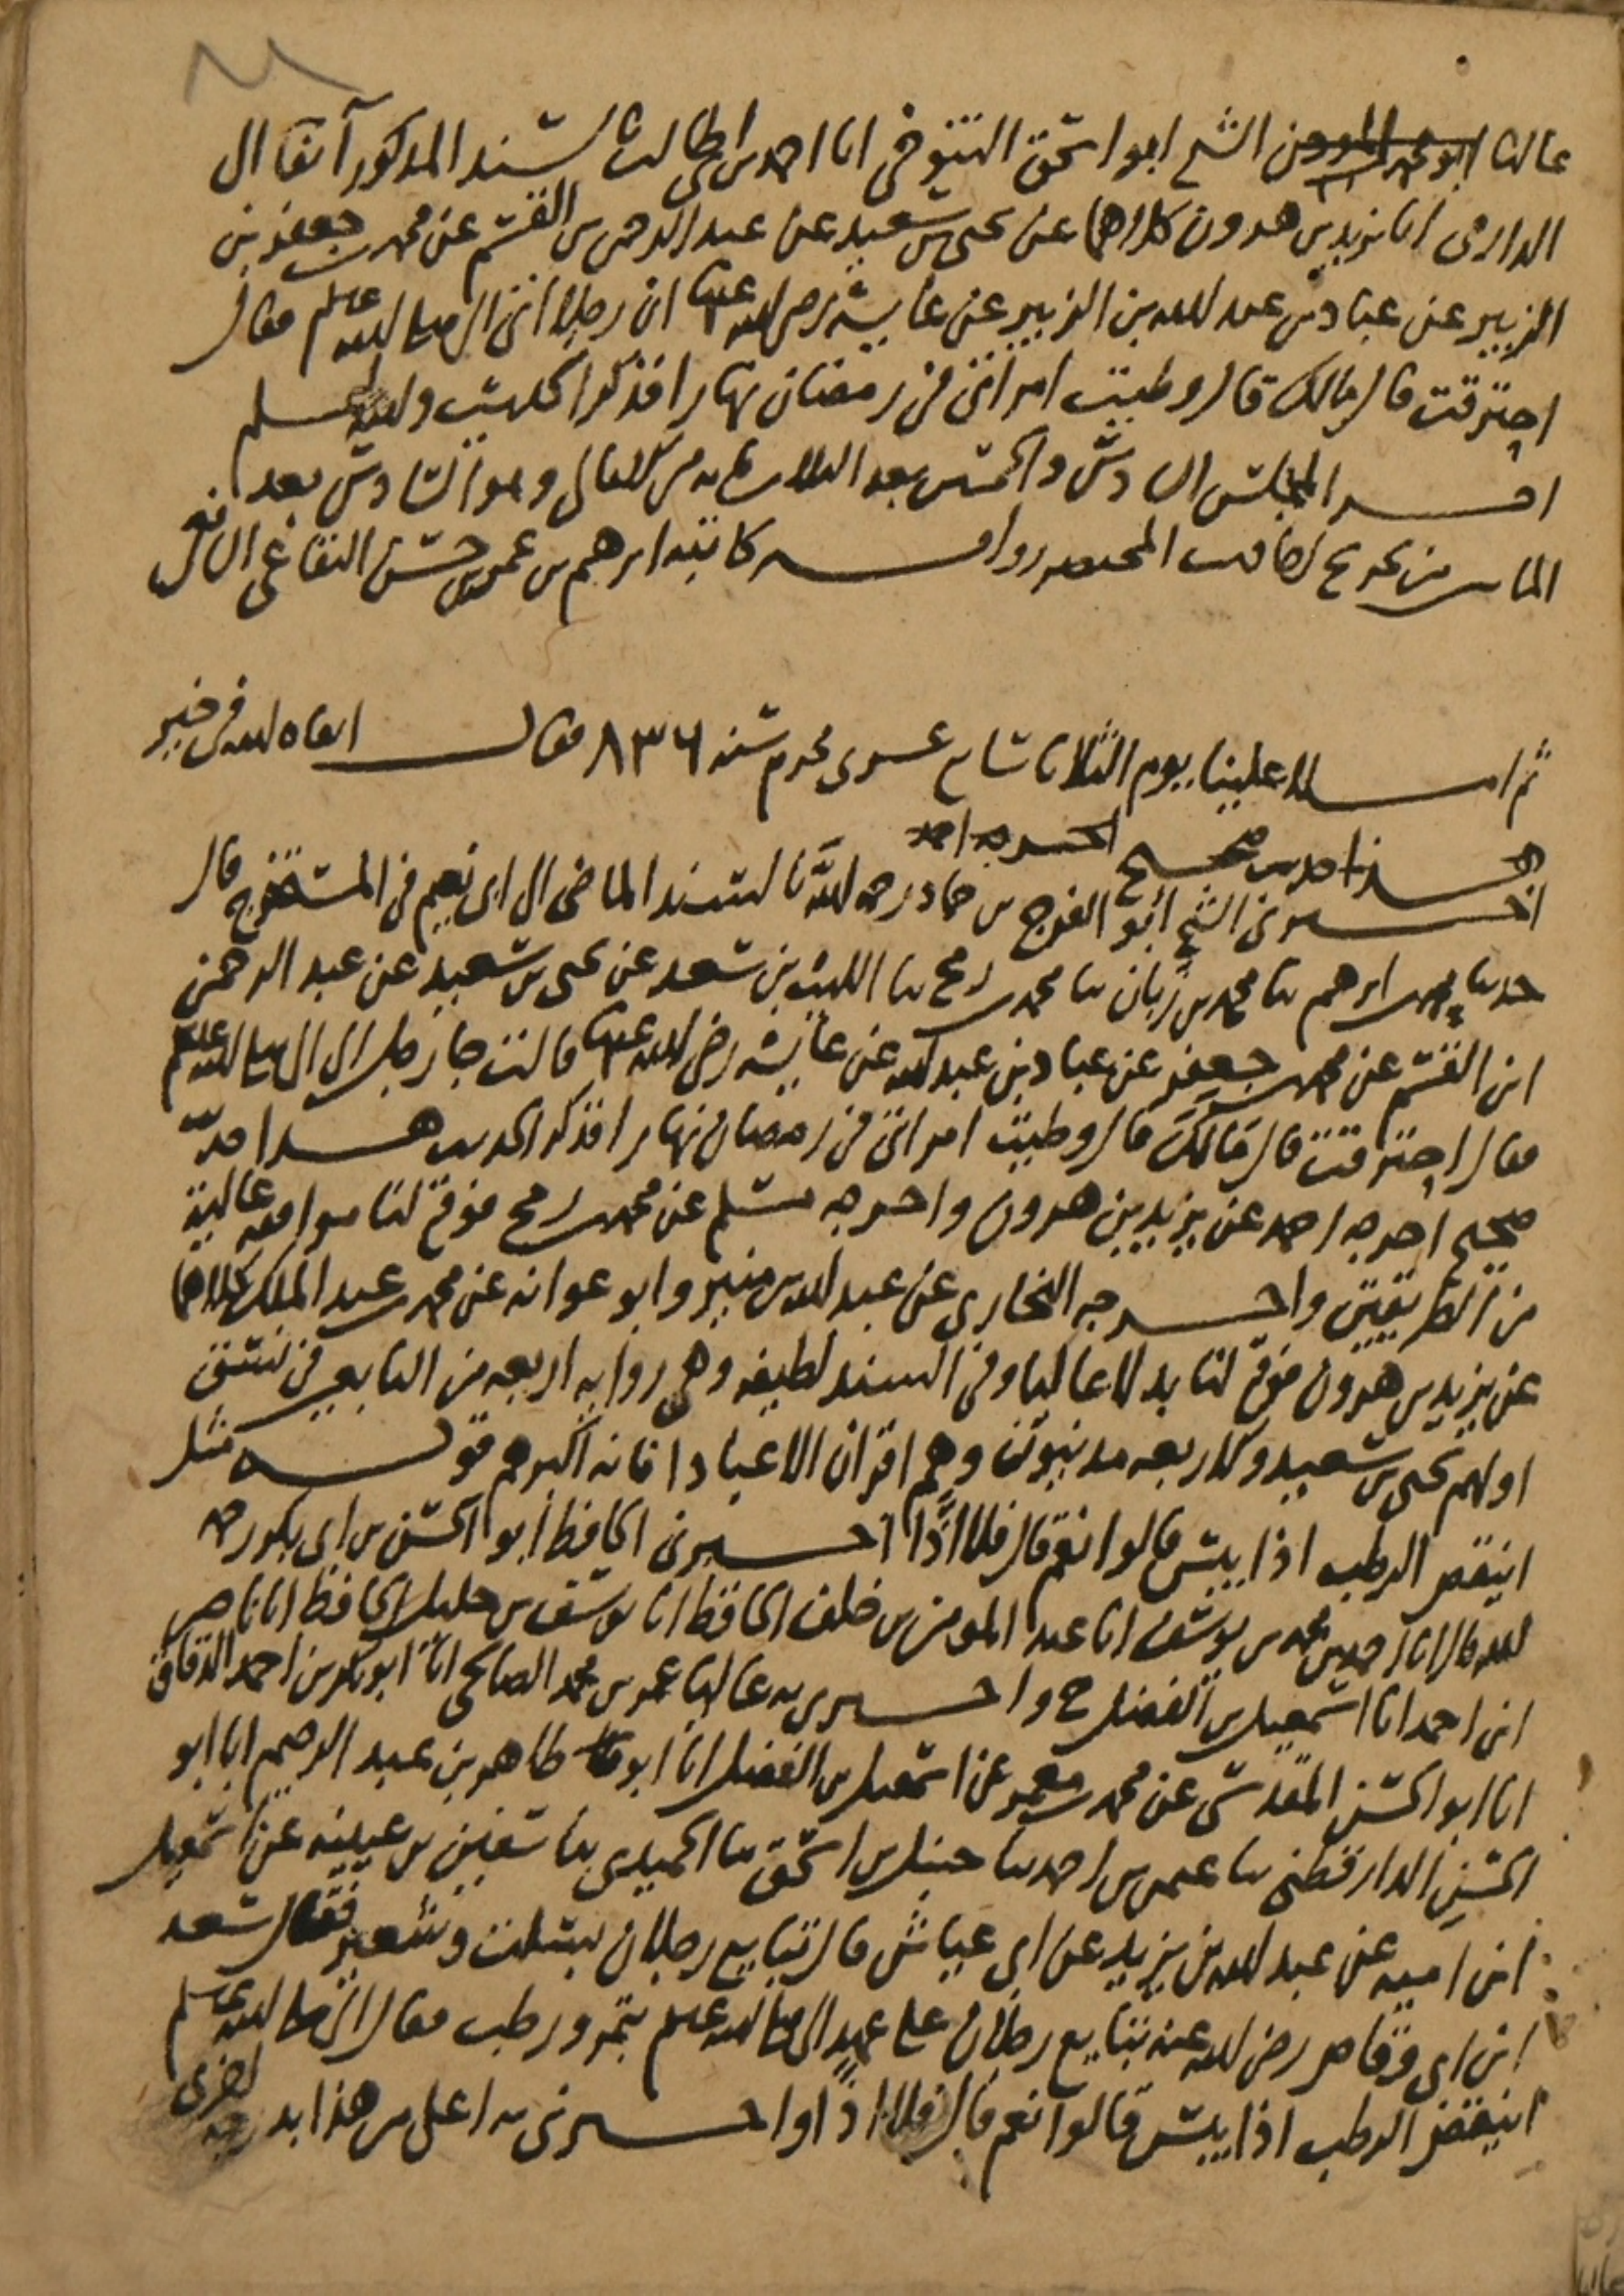 عاليا الشيخ ابو اسحق التنوخي انا احمد بن ابي طالب بالسند المذكور آنفا الى
الدارمي انا يزيد بن هرون كلاهما عن يحيى بن سعيد عن عبد الرحمن بن القسم عن محمد بن جعفر بن
الزبير عن عباد بن عبد الله بن الزبير عن عايشه رضي الله عنها ان رجلا اتى النبي صلى الله عليه وسلم فقال
احترقت قال مالك قال وطيت امراتي في رمضان نهارا فذكر الحديث والله اعلم
اخر المجلس السادس والخمسين بعد الثلاث مايه من الامالي وهو السادس بعد
من تخريج احاديث المختصر رواية كاتبه ابرهيم بن عمر بن حسن البقاعي الشافعي
ثم املا علينا يوم الثلاثا تاسع عشرى محرم سنه ٨٣٦ فقال ابقاه الله في خير
هذا حديث صحيح اخرجه احمد
اخبرني الشيخ أبو الفرج بن حماد رحمه الله بالسند الماضي الى ابي نعيم في المستخرج قال
حدثنا محمد بن ابرهيم ثنا محمد بن زبان ثنا محمد بن رمح ثنا الليث بن سعد عن يحيى بن سعيد عن عبد الرحمن
ابن القسم عن محمد بن جعفر عن عباد بن عبد الله عن عايشه رضي الله عنها قالت جا رجل الى النبي صلى الله عليه وسلم
فقال احترقت قال مالك قال وطيت امراتي في رمضان نهارا فذكر الحديث هذا حديث
صحيح اخرجه احمد عن يزيد بن هرون واخرجه مسلم عن محمد بن رمح فوقع لنا موافقه عالية
من الطريقين واخرجه البخاري عن عبد الله بن منير وابو عوانه عن محمد بن عبد الملك كلاهما
عن يزيد بن هرون فوقع لنا بدلا عاليا وفي السند لطيفه وهي رواية اربعه من التابعين في نسق
اولهم يحيى بن سعيد والاربعه مدنيون وهم اقران الا عبادا فانه اكبرهم قوله مثل
اينقص الرطب اذا يبس قالوا نعم قال فلا اذًا اخبرني الحافظ أبو الحسن بن ابي بكر رحمه
الله قال انا احمد بن محمد بن يوسف انا عبد المومن بن خلف الحافظ انا يوسف بن خليل الحافظ انا ناصر
ابن احمد انا اسمعيل بن الفضل ح واخبرني به عاليا عمر بن محمد الصالحي انا ابو بكر بن احمد الدقاق
انا ابو الحسن المقدسي عن محمد بن معمر عن اسمعيل بن الفضل انا ابو طاهر بن عبد الرحيم انا ابو
الحسن الدارقطني ثنا عمر بن احمد ثنا حنبل بن اسحق ثنا الحميدي ثنا سفين بن عيينه عن اسمعيل
ابن اميه عن عبد الله بن يزيد عن ابي عياش قال تبايع رجلان بسلت وشعير فقال سعد
ابن ابي وقاص رضي الله عنه تبايع رجلان على عهد النبي صلى الله عليه وسلم بتمر ورطب فقال النبي صلى الله عليه وسلم
اينقص الرطب اذا يبس قالوا نعم قال فلا اذًا واخبرني به اعلى من هذا بدرجه اخرى